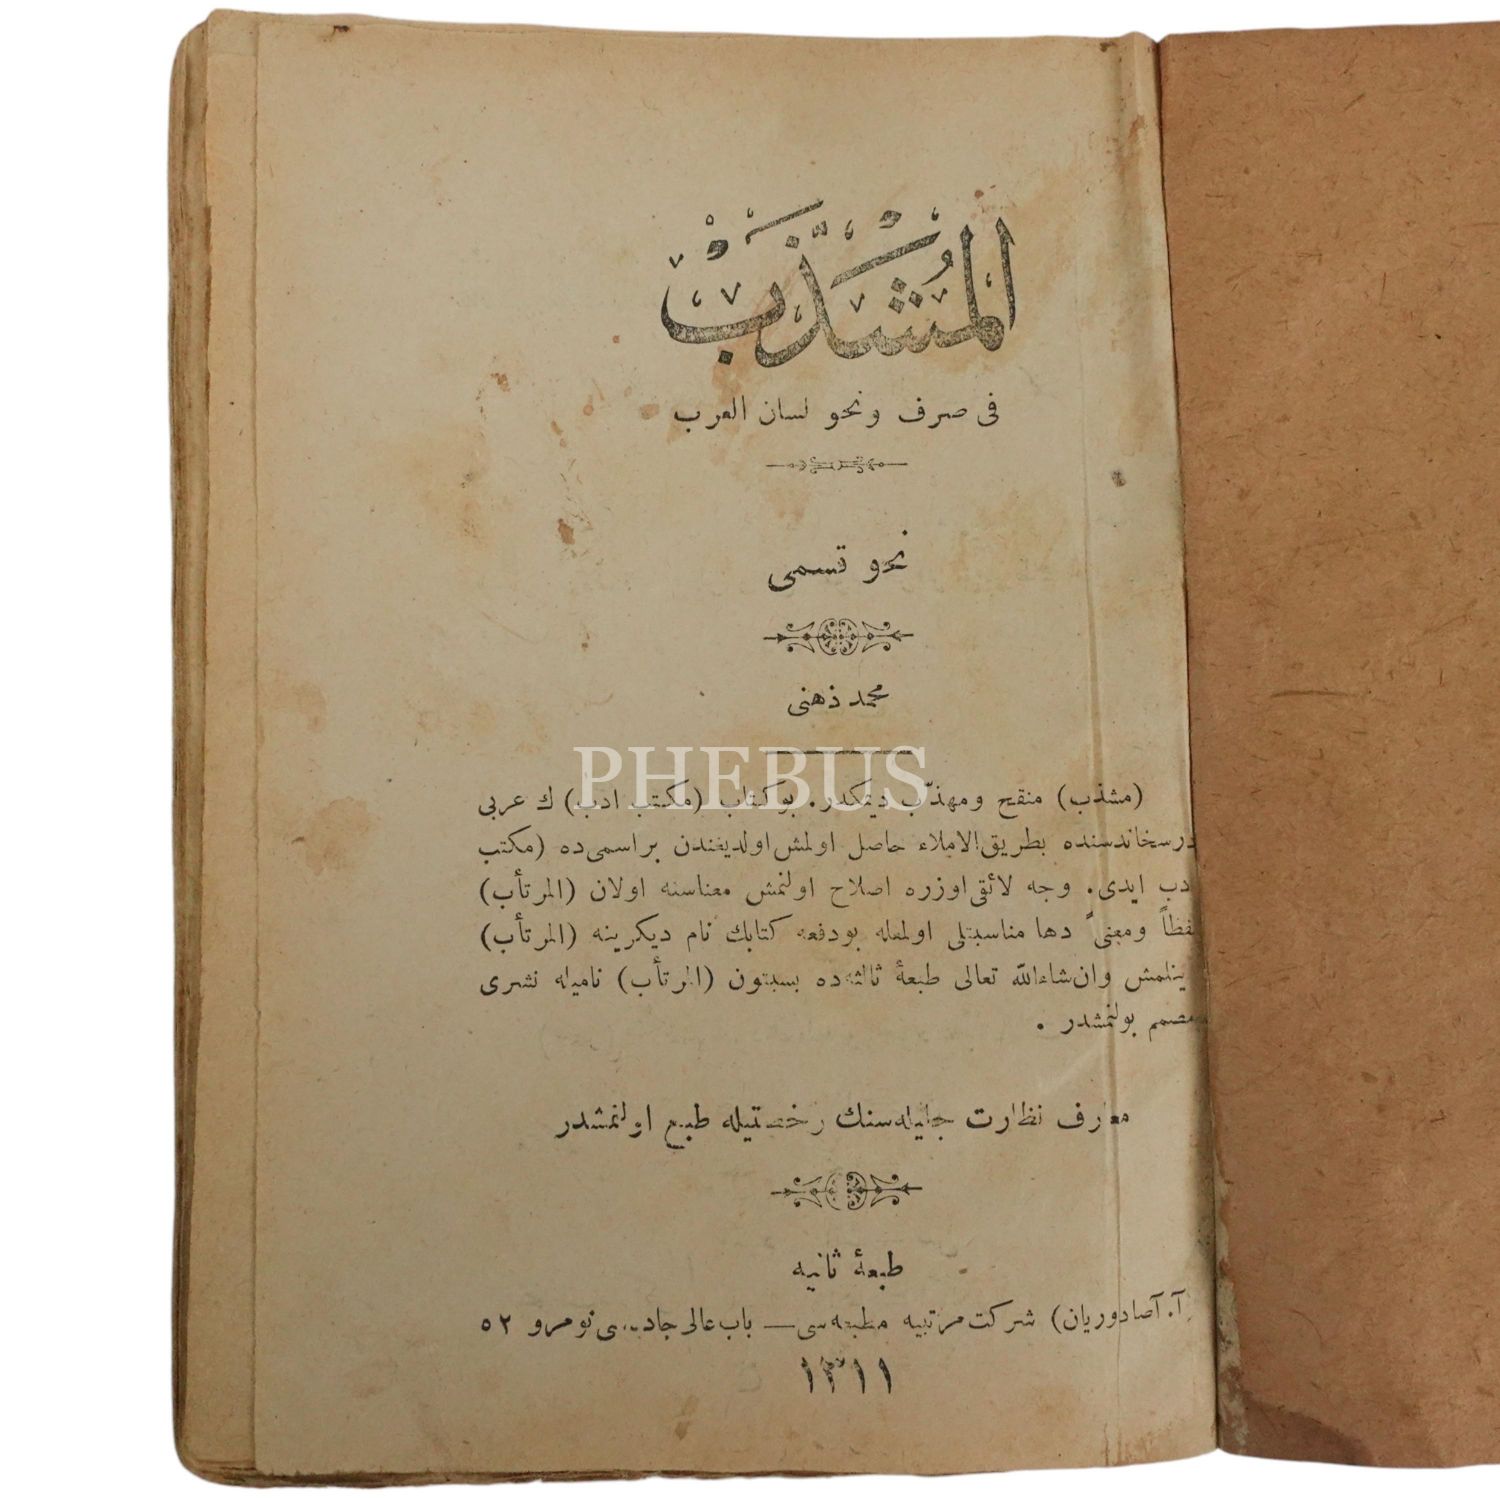 المُشَذَّبْ
فى صرف ونحو لسان العرب
نحو قسمى
محمد ذهنى
PHEBUS
(مشذب) منقح ومهذّب ديمكدر. بوكتاب (مكتب ادب) ك عربى
درسخانه‌سنده بطريق‌الاملاء حاصل اولمش‌اولديغندن براسمى‌ده (مكتب
دب ايدى. وجه لائقى‌اوزره اصلاح اولنمش معناسنه اولان (المرتأب)
فظاً ومعنىً دها مناسبتلى اولمغله بودفعه كتابك نام ديكرينه (المرتأب)
ينلمش وان‌شاءالله تعالى طبعهٔ ثالثه‌ده بسبتون (المرتأب) ناميله نشرى
مصمم بولنمشدر .
معارف نظارت جليله‌سنك رخصتيله طبع اولنمشدر
طبعهٔ ثانيه
آ. آصادوريان) شركت‌مرتبيه مطبعه‌سى — باب‌عالى جاده‌سى نومرو ٥٢
١٣١١